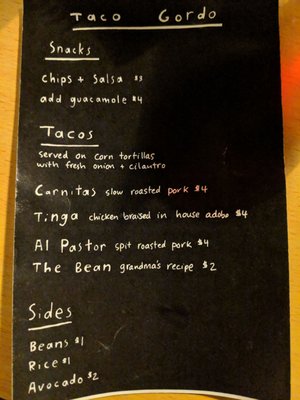 Taco Gordo
Snacks
chips + salsa $3
add guacamole $4
Tacos
served on corn tortillas
with fresh onion + cilantro
Carnitas slow roasted pork $4
Tinga chicken braised in house adobo $4
Al Pastor spit roasted pork $4
The Bean grandma's recipe $2
Sides
Beans $1
Rice $1
Avocado $2